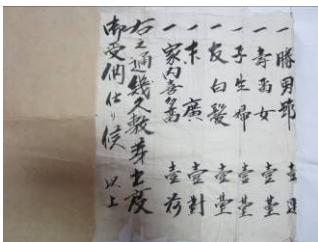 一勝男節 壹連
一寿留女 壹臺
一子生婦 壹臺
一友白髪 壹臺
一末廣 壹対
一家内喜多留 壹荷
右之通幾久敷芽出度
御受納仕り候 以上